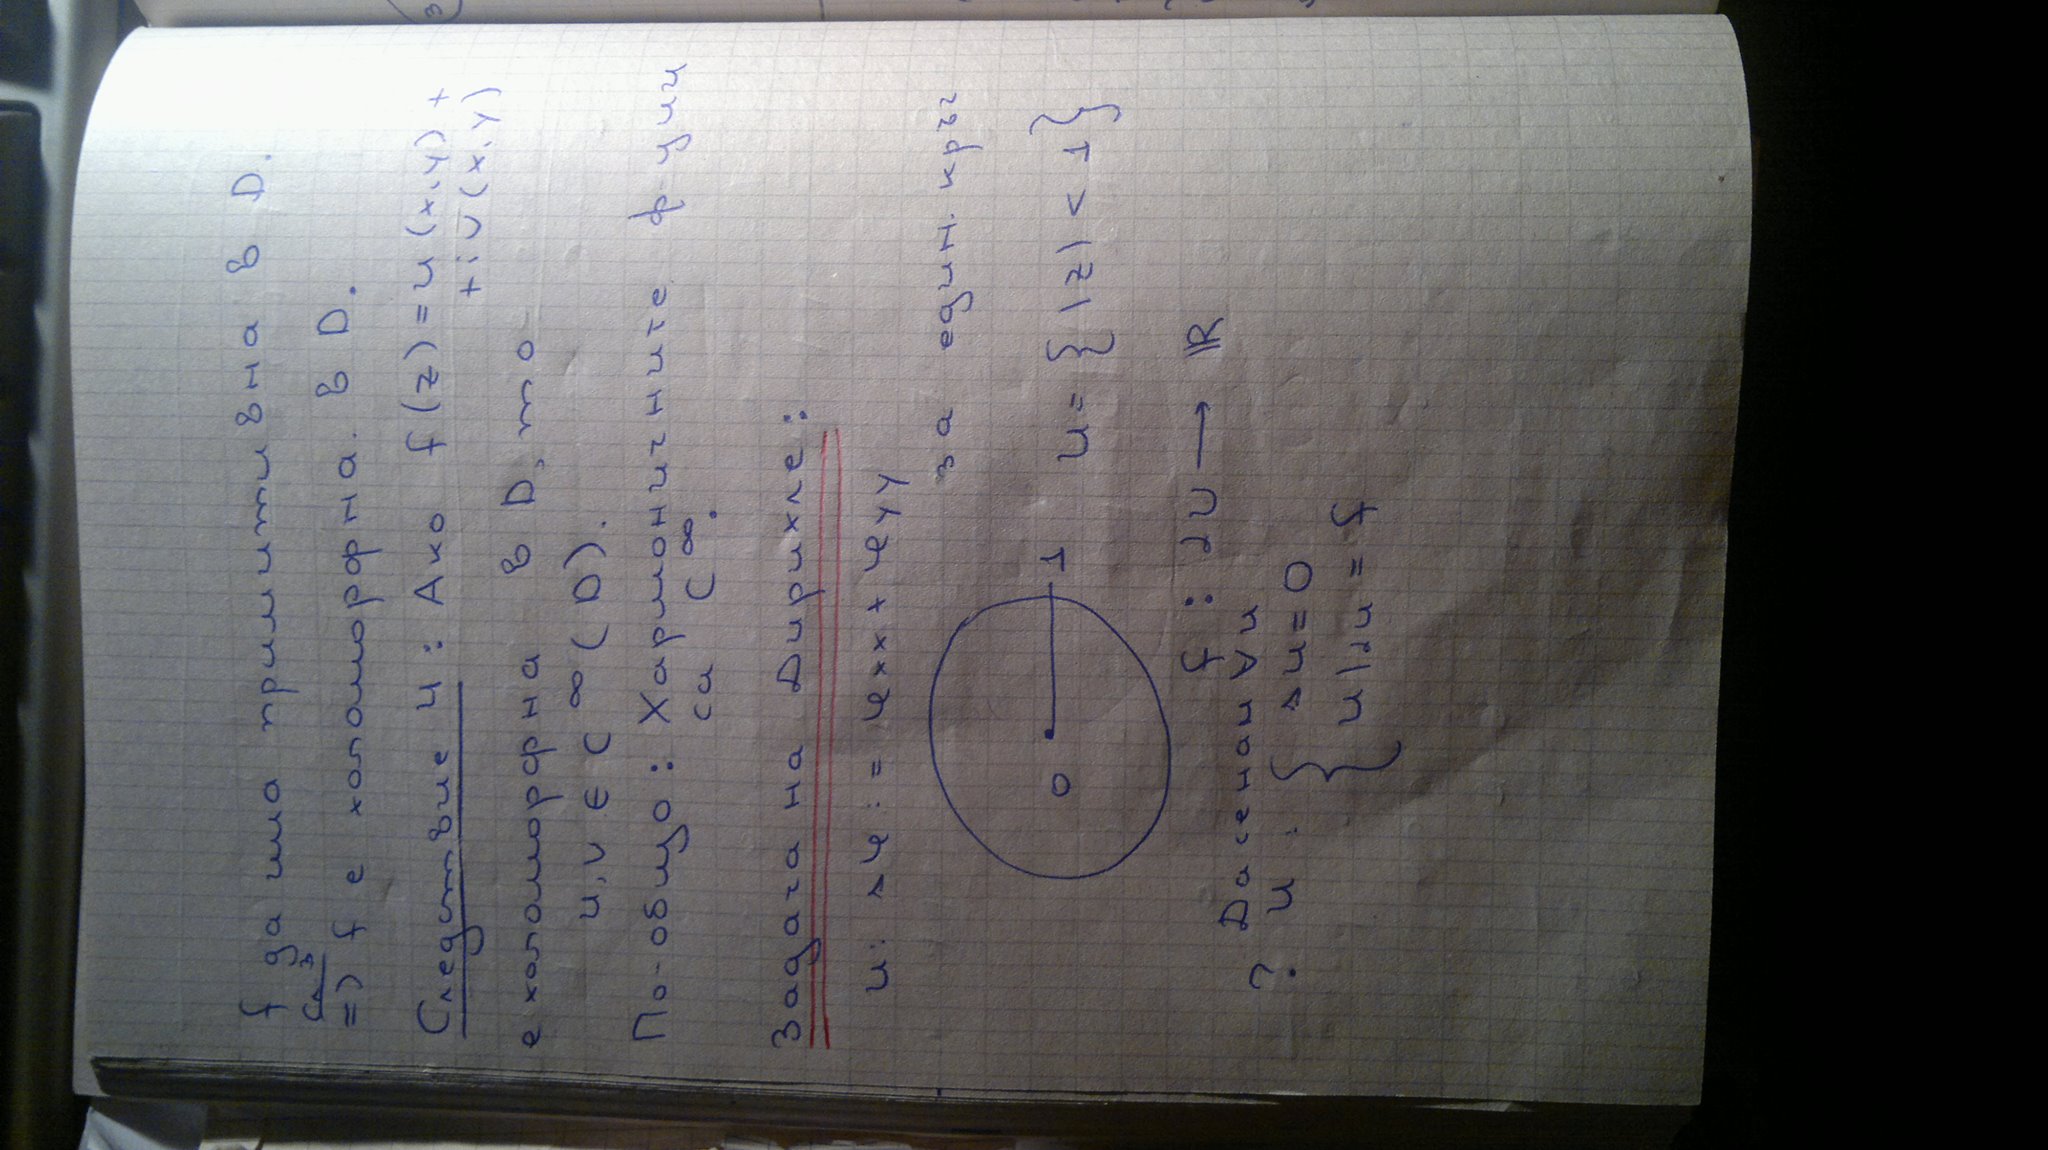 f да има примитивна в D.
Сл3
=> f е холоморфна в D.
Следствие 4: Ако f(z)=u(x,y)+
+iv(x,y)
е холоморфна в D, то
u,v ∈ C∞(D).
По-общо: Хармоничните ф-ции
са C∞.
Задача на Дирихле:
u: Δφ := φxx + φyy
за един. кръг
0 1 U={|z|<1}
f: ∂U → R
? Да се нам u
u: { Δu=0
u|∂u=f